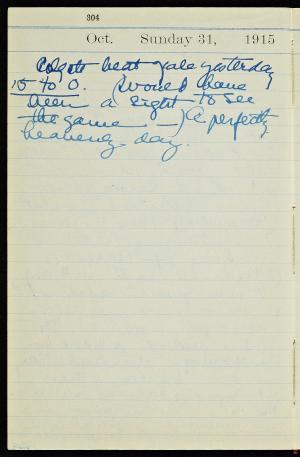 304
Oct. Sunday 31, 1915
Colgate beat Yale yesterday
15 to 0. (would have
been a sight to see
the game —) A perfectly
heavenly day.